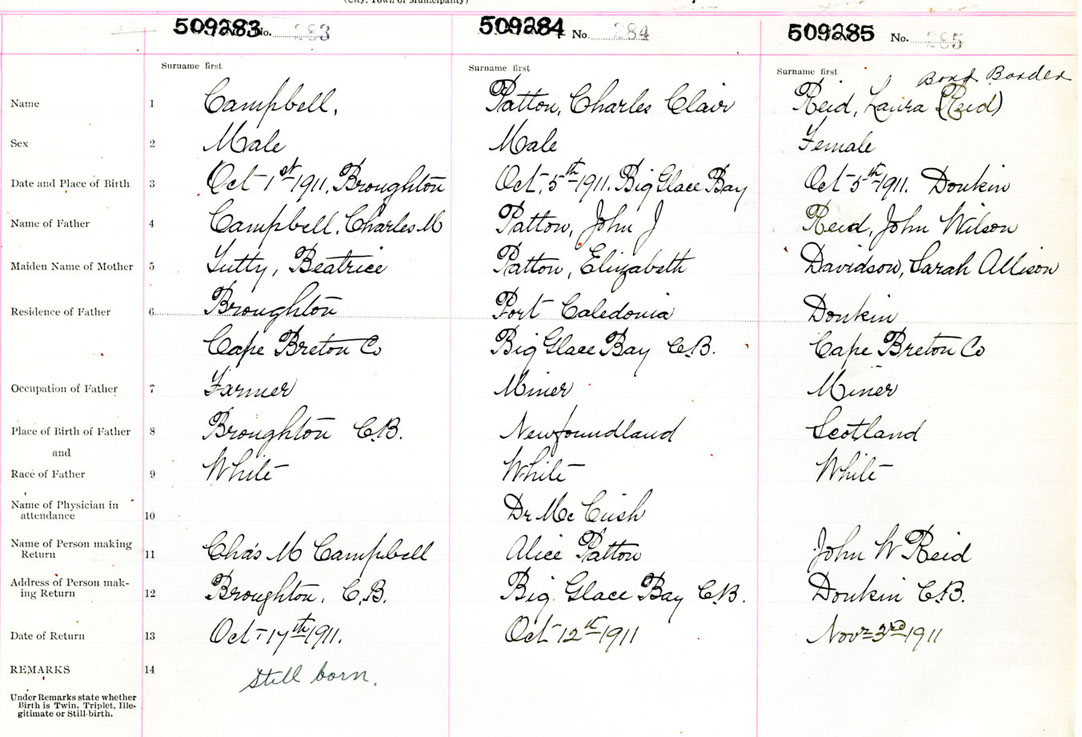 (City, Town or Municipality)
509283 No. 283 509284 No. 284 509285 No. 285
Surname first Surname first Surname first Bond. Border
Name 1 Campbell, Patton, Charles Clair Reid, Laura (Reid)
Sex 2 Male Male Female
Date and Place of Birth 3 Oct 1st 1911, Broughton Oct, 5th 1911. Big Glace Bay Oct 5th 1911. Donkin
Name of Father 4 Campbell, Charles M Patton, John J Reid, John Wilson
Maiden Name of Mother 5 Tutty, Beatrice Patton, Elizabeth Davidson, Sarah Allison
Residence of Father 6 Broughton Port Caledonia Donkin
Cape Breton Co Big Glace Bay C.B. Cape Breton Co
Occupation of Father 7 Farmer Miner Miner
Place of Birth of Father 8 Broughton C.B. Newfoundland Scotland
and
Race of Father 9 White White White
Name of Physician in
attendance 10 Dr McCuish
Name of Person making
Return 11 Cha's M Campbell Alice Patton John W Reid
Address of Person mak-
ing Return 12 Broughton, C.B. Big Glace Bay C.B. Donkin C.B.
Date of Return 13 Oct 17th 1911. Oct 12th 1911 Novr 3rd 1911
REMARKS 14 Still born.
Under Remarks state whether
Birth is Twin, Triplet, Ille-
gitimate or Still-birth.